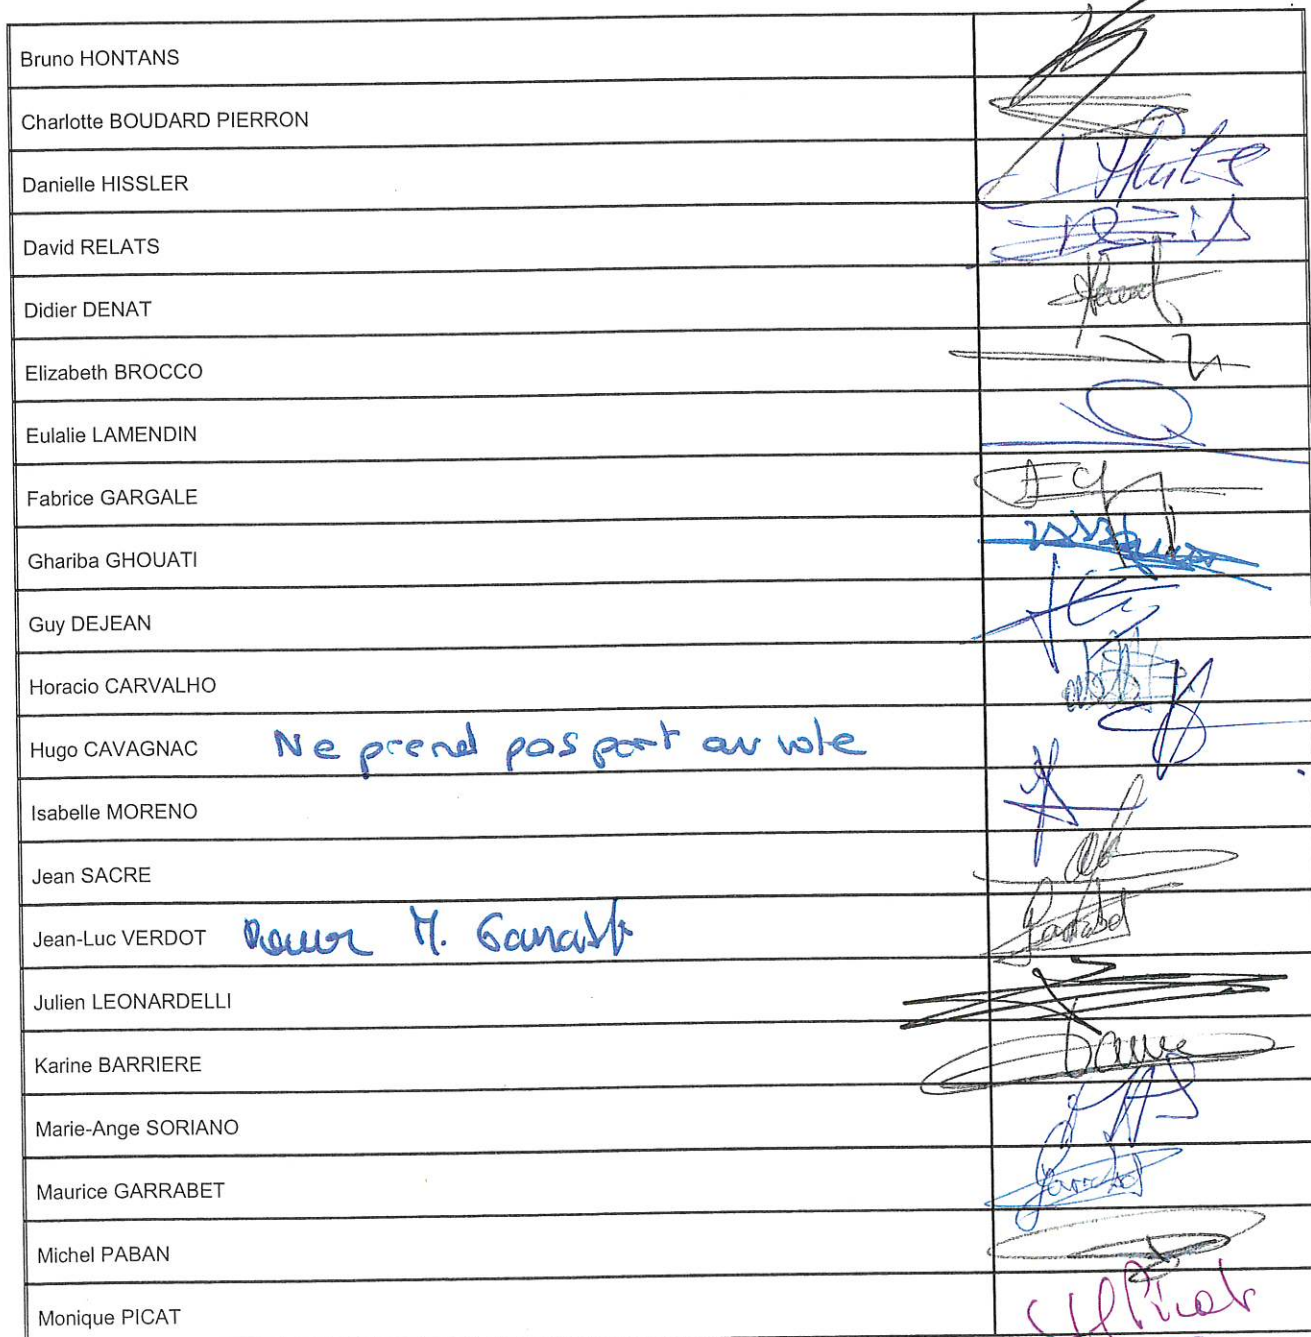 Bruno HONTANS
Charlotte BOUDARD PIERRON
Danielle HISSLER
David RELATS
Didier DENAT
Elizabeth BROCCO
Eulalie LAMENDIN
Fabrice GARGALE
Ghariba GHOUATI
Guy DEJEAN
Horacio CARVALHO
Hugo CAVAGNAC Ne prend pas part au vote
Isabelle MORENO
Jean SACRE
Jean-Luc VERDOT M.
Julien LEONARDELLI
Karine BARRIERE
Marie-Ange SORIANO
Maurice GARRABET
Michel PABAN
Monique PICAT